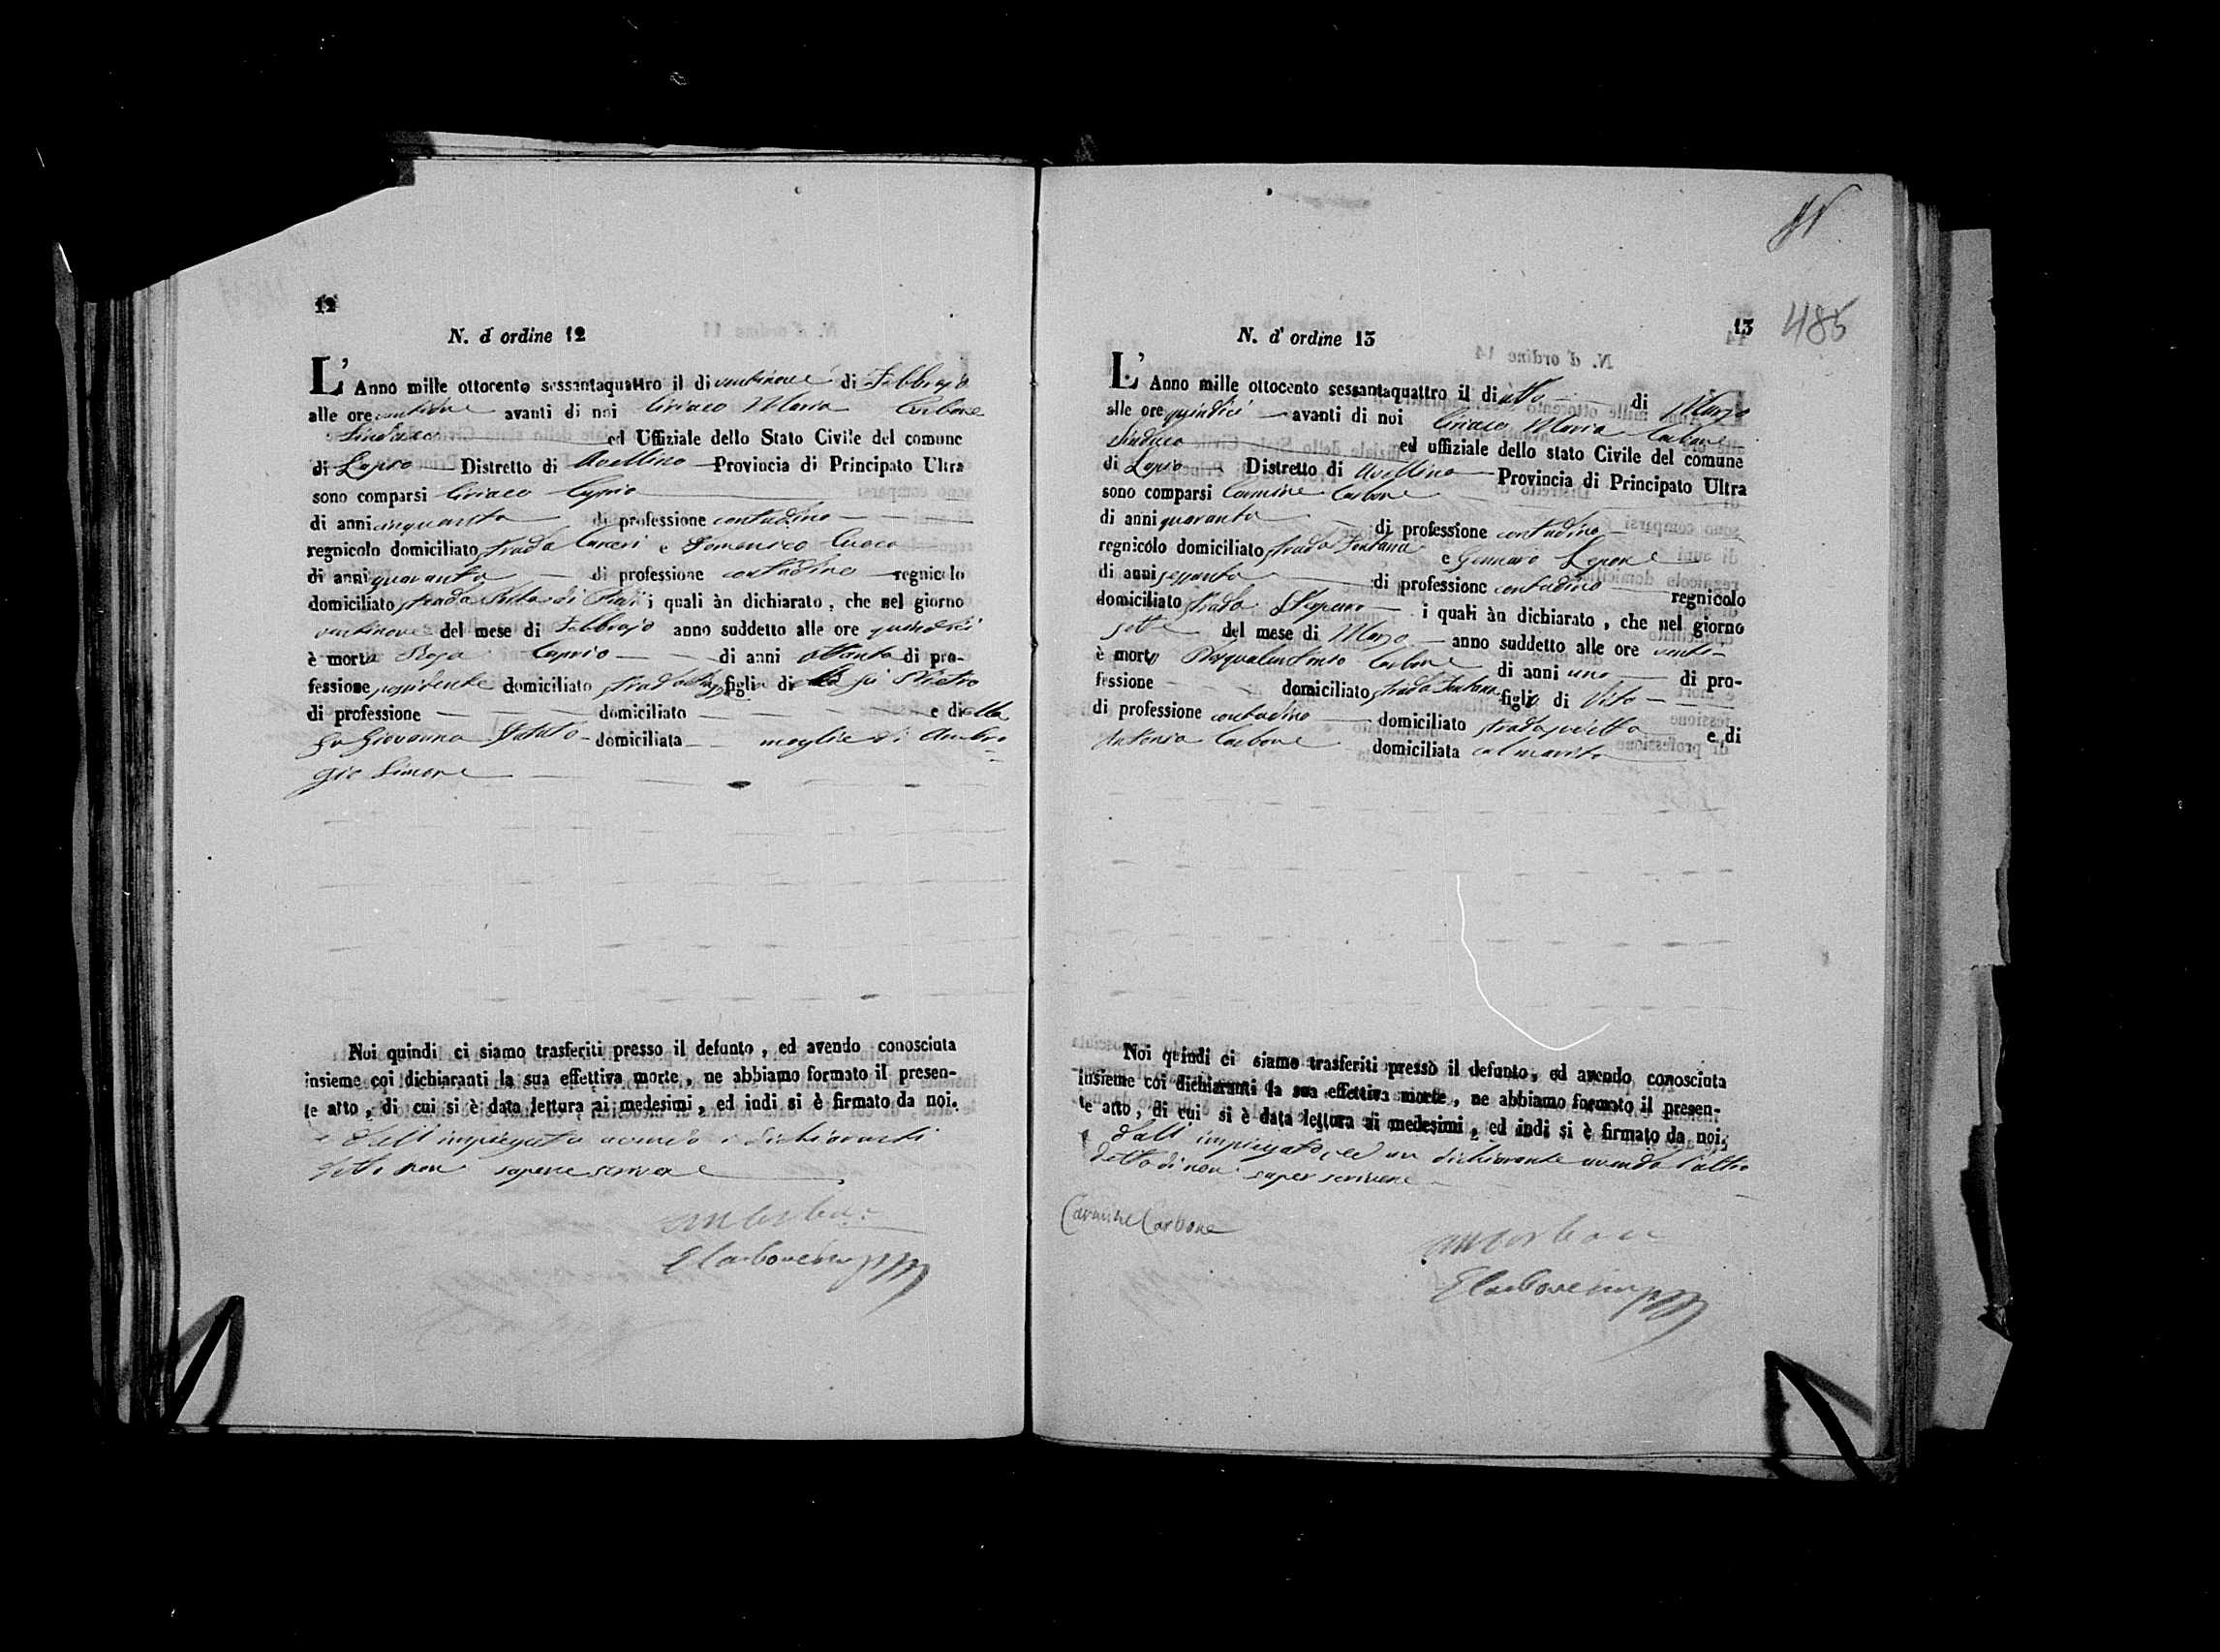 12
N. d' ordine 12
L' Anno mille ottocento sessantaquattro il di ventinove di Febbrajo
alle ore avanti di noi Ciriaco Maria Carbone
Sindaco ed Uffiziale dello Stato Civile del comune
di Lapio Distretto di Avellino Provincia di Principato Ultra
sono comparsi Ciriaco Caprio
di anni cinquanta di professione contadino
regnicolo domiciliato strada Carceri e Domenico Cuoco
di anni quaranta di professione contadino regnicolo
domiciliato strada di i quali àn dichiarato, che nel giorno
ventinove del mese di Febbrajo anno suddetto alle ore quindici
è morta Rosa Caprio di anni ottanta di pro-
fessione possidente domiciliato strada figlia di fu Pietro
di professione domiciliato e della
fu Giovanna domiciliata moglie di Ambro
gio Simone
Noi quindi ci siamo trasferiti presso il defunto, ed avendo conosciuta
insieme coi dichiaranti la sua effettiva morte, ne abbiamo formato il presen-
te atto, di cui si è data lettura ai medesimi, ed indi si è firmato da noi.
e dall' impiegato avendo i dichiaranti
detto non sapere scrivere
CM Carbone
E Carbone imp
485
13
N. d' ordine 13
L' Anno mille ottocento sessantaquattro il di otto di Marzo
alle ore quindici avanti di noi Ciriaco Maria Carbone
Sindaco ed uffiziale dello stato Civile del comune
di Lapio Distretto di Avellino Provincia di Principato Ultra
sono comparsi Carmine Carbone
di anni quaranta di professione contadino
regnicolo domiciliato strada Fontana e Gennaro Lepore
di anni sessanta di professione contadino regnicolo
domiciliato strada i quali àn dichiarato, che nel giorno
sette del mese di Marzo anno suddetto alle ore venti
è morto Pasqualantonio Carbone di anni uno di pro-
fessione domiciliato strada Fontana figlio di Vito
di professione contadino domiciliato strada suddetta e di
Antonia Carbone domiciliata col marito
Noi quindi ci siamo trasferiti presso il defunto, ed avendo conosciuta
insieme coi dichiaranti la sua effettiva morte, ne abbiamo formato il presen-
te atto, di cui si è data lettura ai medesimi, ed indi si è firmato da noi,
e dall' impiegato, ed un dichiarante avendo l'altro
detto di non saper scrivere
Carmine Carbone
CM Carbone
E Carbone imp